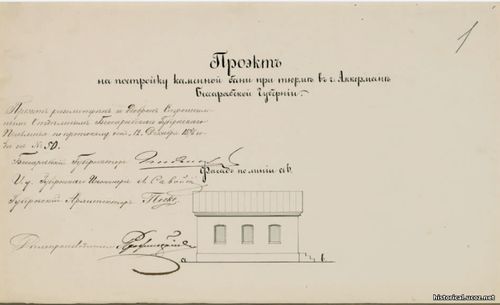 1
Проэктъ
на постройку каменной бани при тюрмѣ въ г. Аккерманѣ
Бесарабской Губернiи.
Проектъ разсмотренъ и одобренъ Строительнымъ
Отделенiемъ Бесарабскаго Губернскаго
Правленiя по протоколу 12 Декабря
за № 50.
Бесарабскiй Губернаторъ
Фасадъ по линiи ав.
И. д. Губернскаго Инженера
Губернскiй Архитекторъ
Делопроизводитель
а в
historical.ucoz.net